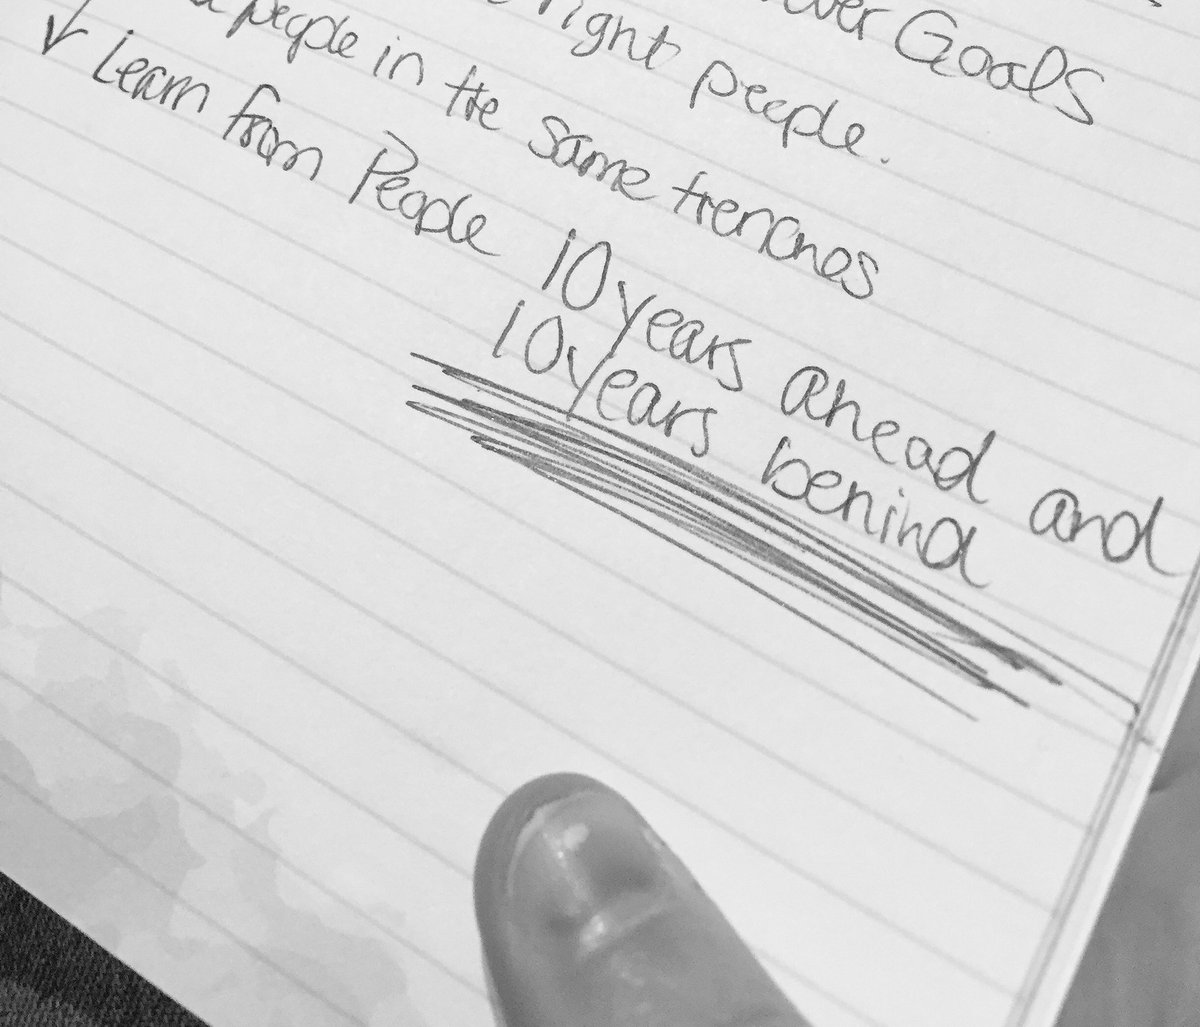 Goals
right people.
people in the same trenches
✓ Learn from People 10 years ahead and
10 years behind